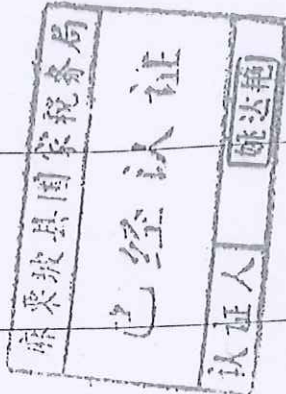 麻栗坡县国家税务局
已经认证
认证人